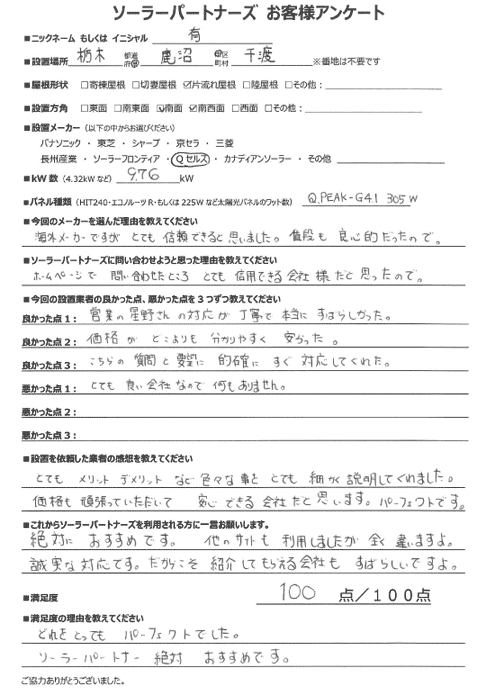 ソーラーパートナーズ お客様アンケート
■ニックネーム もしくは イニシャル 有
■設置場所 栃木 都道府県 鹿沼 市区町村 千渡 ※番地は不要です
■屋根形状 □寄棟屋根 □切妻屋根 ☑片流れ屋根 □陸屋根 □その他：
■設置方角 □東面 □南東面 ☑南面 ☑南西面 □西面 □その他：
■設置メーカー（以下の中からお選びください）
パナソニック ・ 東芝 ・ シャープ ・ 京セラ ・ 三菱
長州産業 ・ ソーラーフロンティア ・ Qセルズ ・ カナディアンソーラー ・ その他
■kW数（4.32kWなど） 9.76 kW
■パネル種類（HIT240・エコノルーツR・もしくは225Wなど太陽光パネルのワット数） Q.PEAK-G4.1 305W
■今回のメーカーを選んだ理由を教えてください
海外メーカーですが とても 信頼できると思いました。 値段も 良心的だったので。
■ソーラーパートナーズに問い合わせようと思った理由を教えてください
ホームページで 問い合わせたところ とても 信用できる会社様だと思ったので。
■今回の設置業者の良かった点、悪かった点を3つずつ教えてください
良かった点1： 営業の星野さんの対応が丁寧で本当にすばらしかった。
良かった点2： 価格が どこよりも 分かりやすく 安かった。
良かった点3： こちらの 質問と要望に 的確に すぐ 対応してくれた。
悪かった点1： とても 良い会社なので 何もありません。
悪かった点2：
悪かった点3：
■設置を依頼した業者の感想を教えてください
とても メリット デメリット など 色々な事を とても 細かく 説明してくれました。
価格も 頑張っていただいて 安心できる会社だと思います。パーフェクトです。
■これからソーラーパートナーズを利用される方に一言お願いします。
絶対に おすすめです。 他のサイトも 利用しましたが 全く 違いますよ。
誠実な対応です。だからこそ 紹介してもらえる会社も すばらしいですよ。
■満足度 100 点/100点
■満足度の理由を教えてください
どれをとっても パーフェクトでした。
ソーラーパートナー 絶対 おすすめです。
ご協力ありがとうございました。